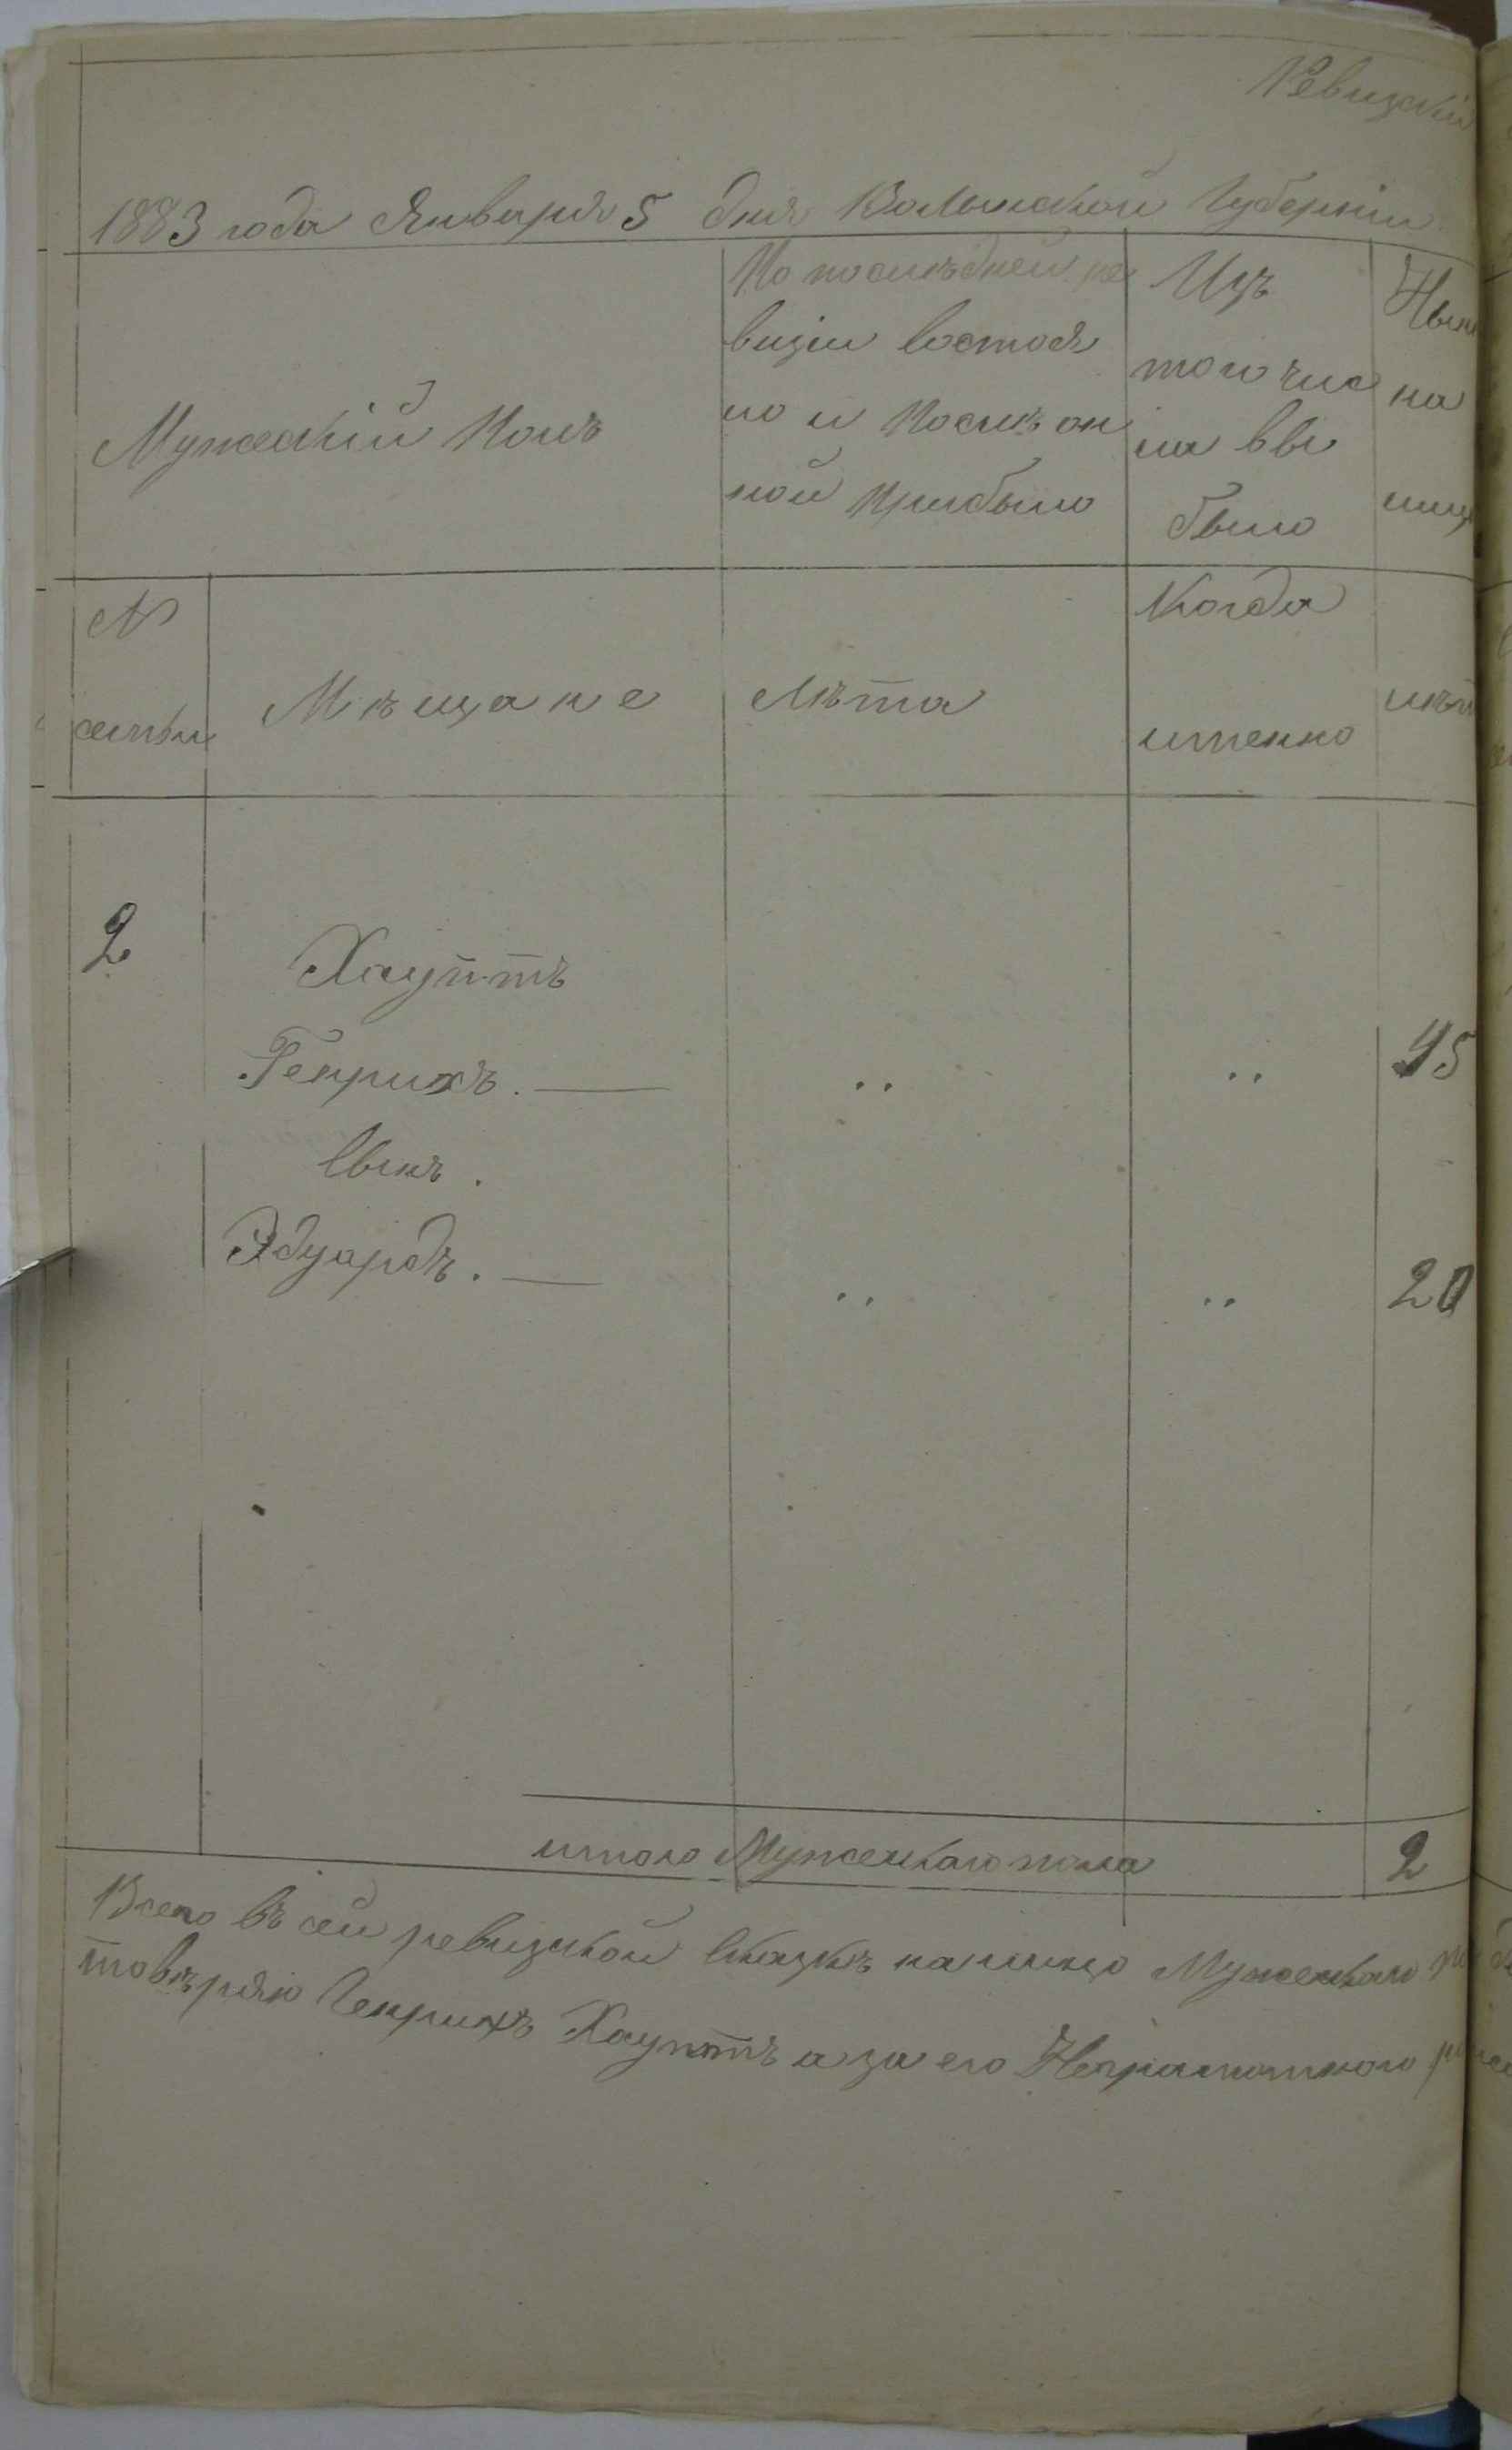 Ревизскій
1883 года Января 5 дня Волынской Губерніи
Мужескій Полъ
По послѣдней ре
визіи состоя
ло и Послѣ он
ной Прибыло
Изъ
того чис
ла вы
было
Нын
на
лиц
№
семьи
Мѣщане
Лѣта
Когда
именно
лѣт
2
Хауптъ
Генрихъ. — „ „ 45
Сынъ.
Эдуардъ. — „ „ 20
итого Мужескаго пола 2
Всего въ сей ревизской Сказкѣ налицо Мужескаго по
товѣряю Генрихъ Хауптъ а за его Неграмотного